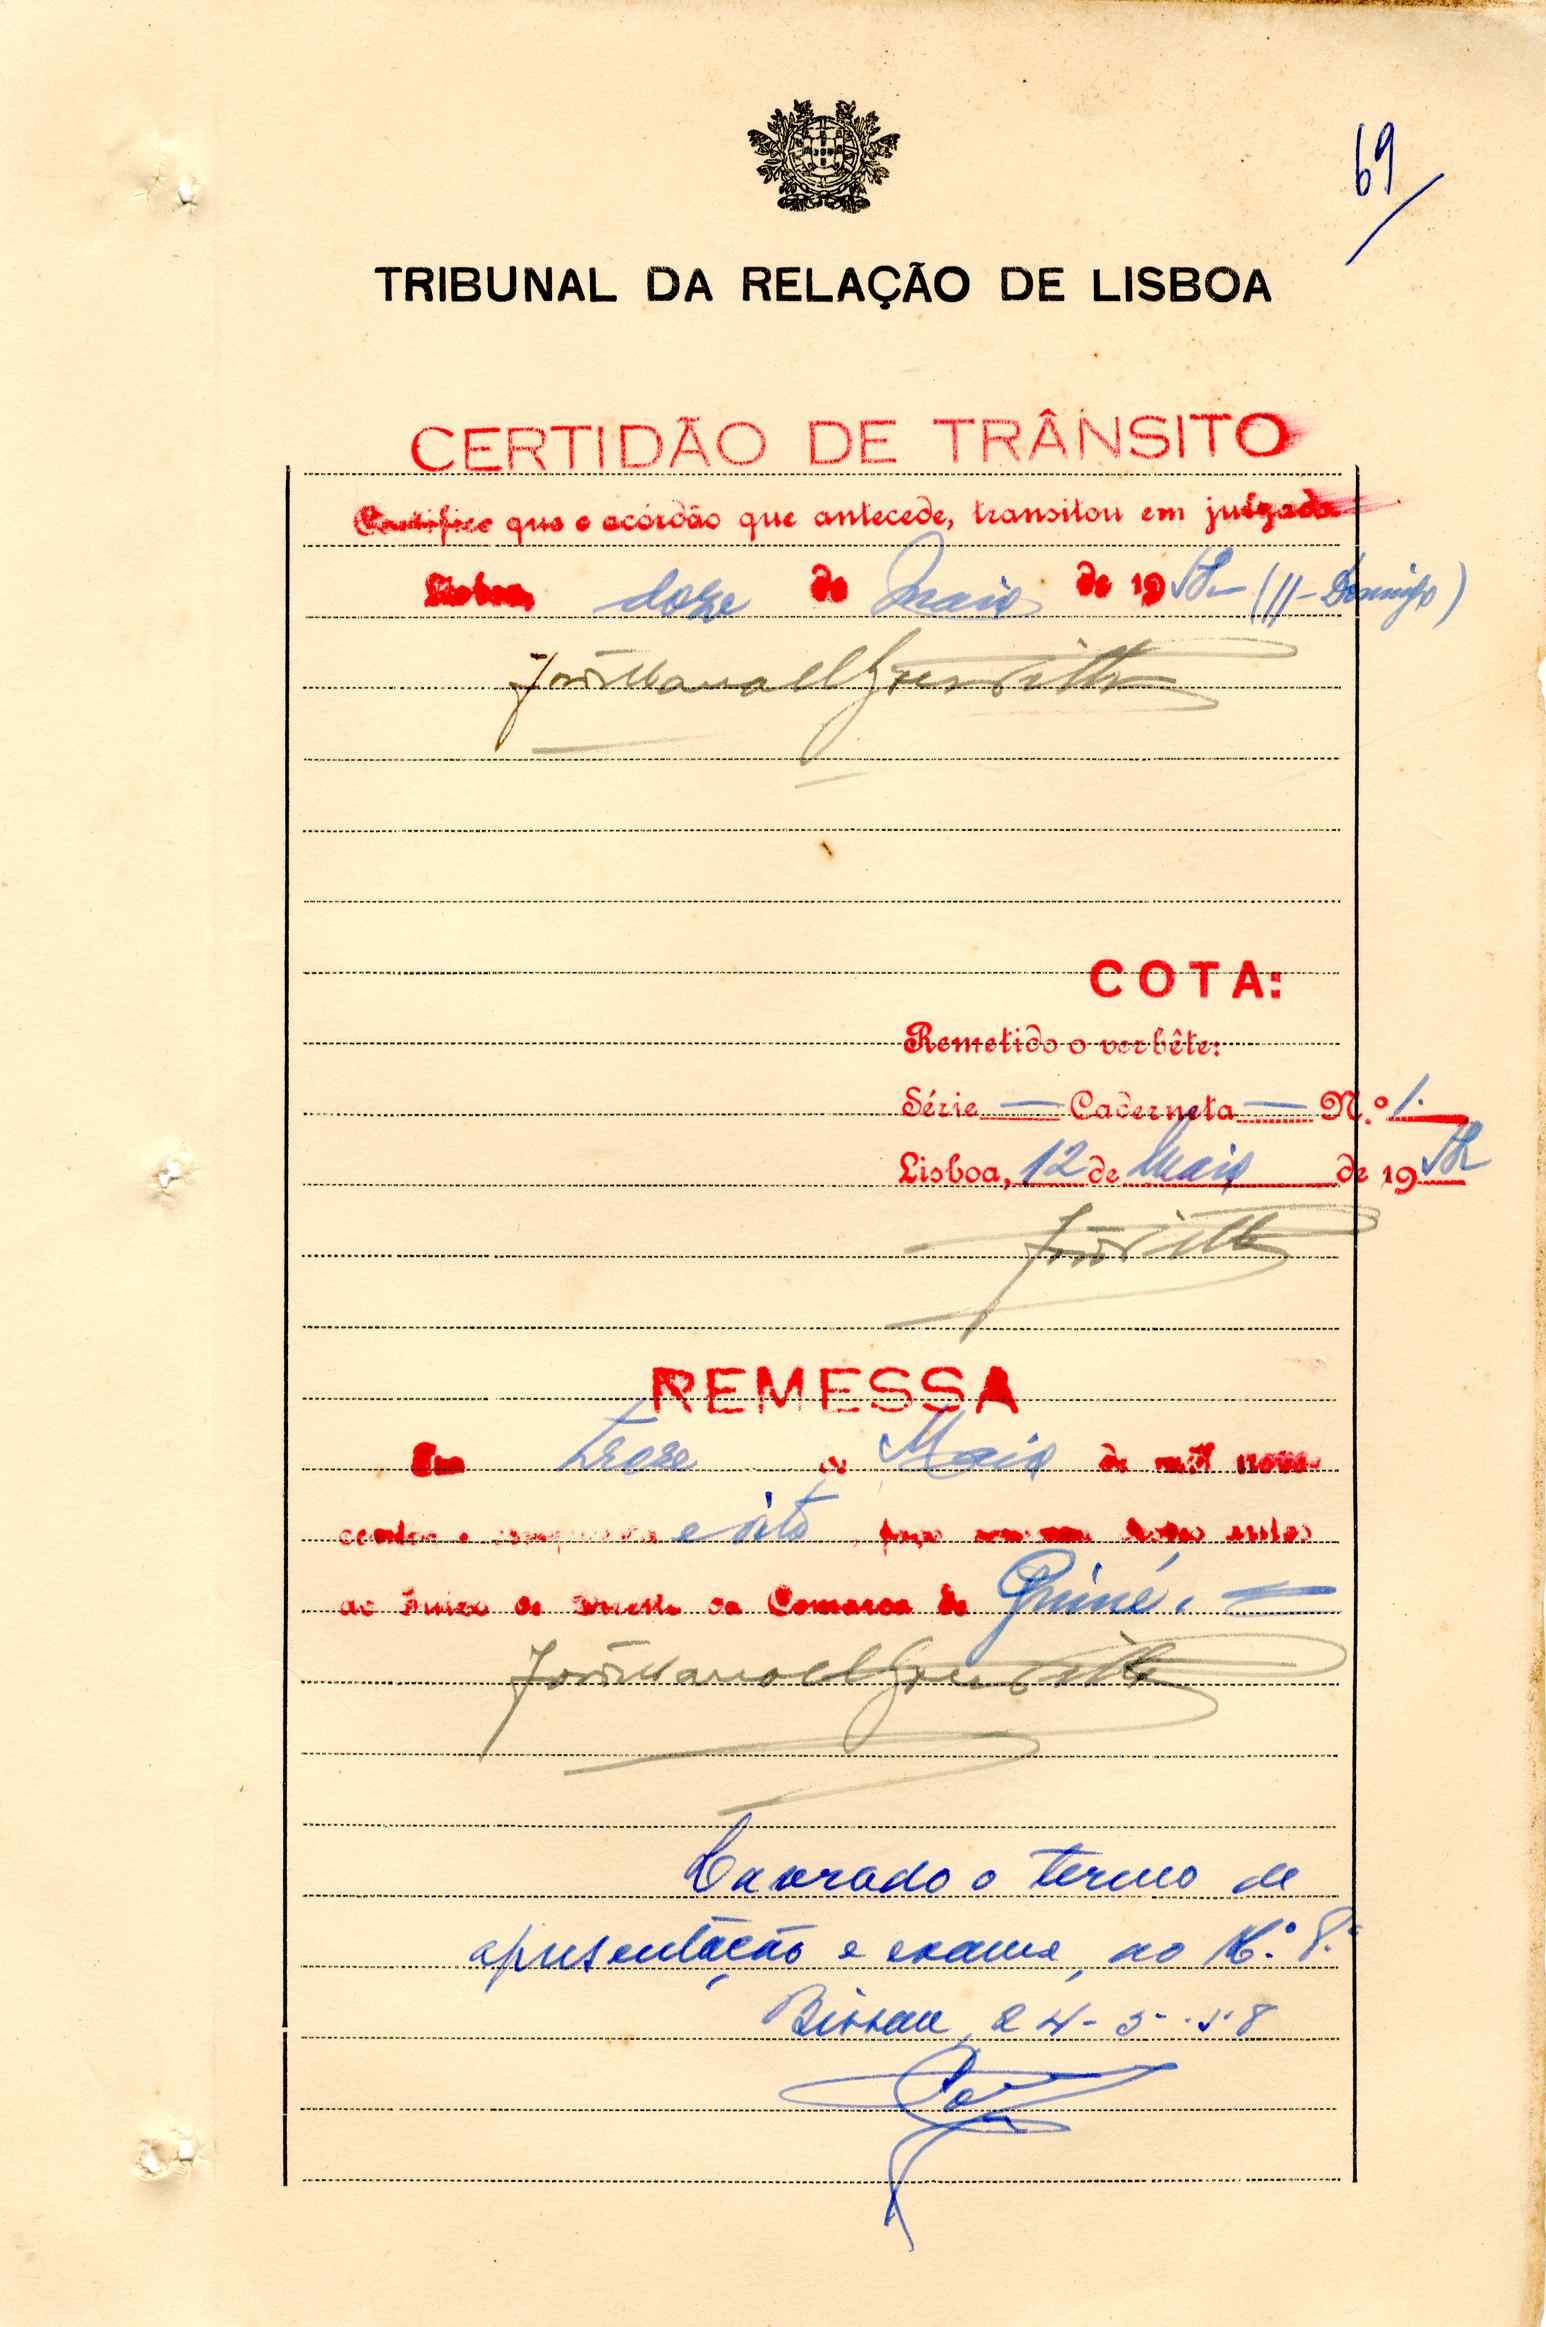 69
TRIBUNAL DA RELAÇÃO DE LISBOA
CERTIDÃO DE TRÂNSITO
Certifico que o acórdão que antecede, transitou em julgado
Lisboa, doze de Maio de 1958 (11-Domingo)
José Manoel
COTA:
Remetido o verbête:
Série — Caderneta — N.º 1.
Lisboa, 12 de Maio de 1958
REMESSA
Em treze de Maio de mil nove-
centos e cinquenta e oito, faço remessa destes autos
ao Juízo de Direito da Comarca da Guiné. —
José Manoel
Lavrado o termo de
apresentação e exame, ao N.º 8.
Bissau, 24-5-58